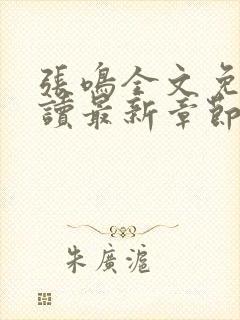 張鳴全文免
讀最新章節
朱廣滬